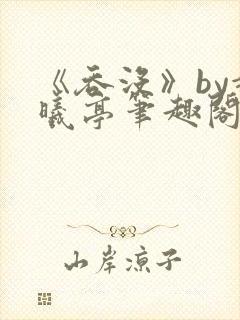 《吞没》by
曦亭筆趣閣
山岸凉子